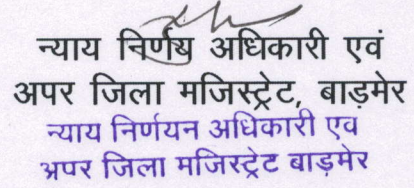 न्याय निर्णय अधिकारी एवं
अपर जिला मजिस्ट्रेट, बाड़मेर
न्याय निर्णयन अधिकारी एव
अपर जिला मजिस्ट्रेट बाड़मेर